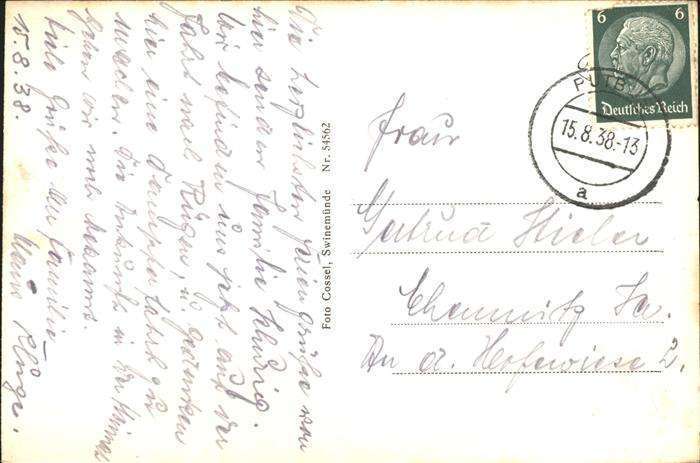 Die herzlichsten Feriengrüße von
hier sendet Familie Kluge.
Wir befinden uns jetzt auf der
Fahrt nach Rügen, u. gedenken
hier eine Dampferfahrt zu
machen. Die Ankunft in der Heimat
geben wir noch bekannt.
Viele Grüße der Familie
Hans Kluge.
15.8.38.
Foto Cossel, Swinemünde Nr. 54562
6 6
Deutsches Reich
PUTB
15.8.38.-13
a
Frau
Gertrud Stieler
Chemnitz Sa.
An d. Hofewiese 2.